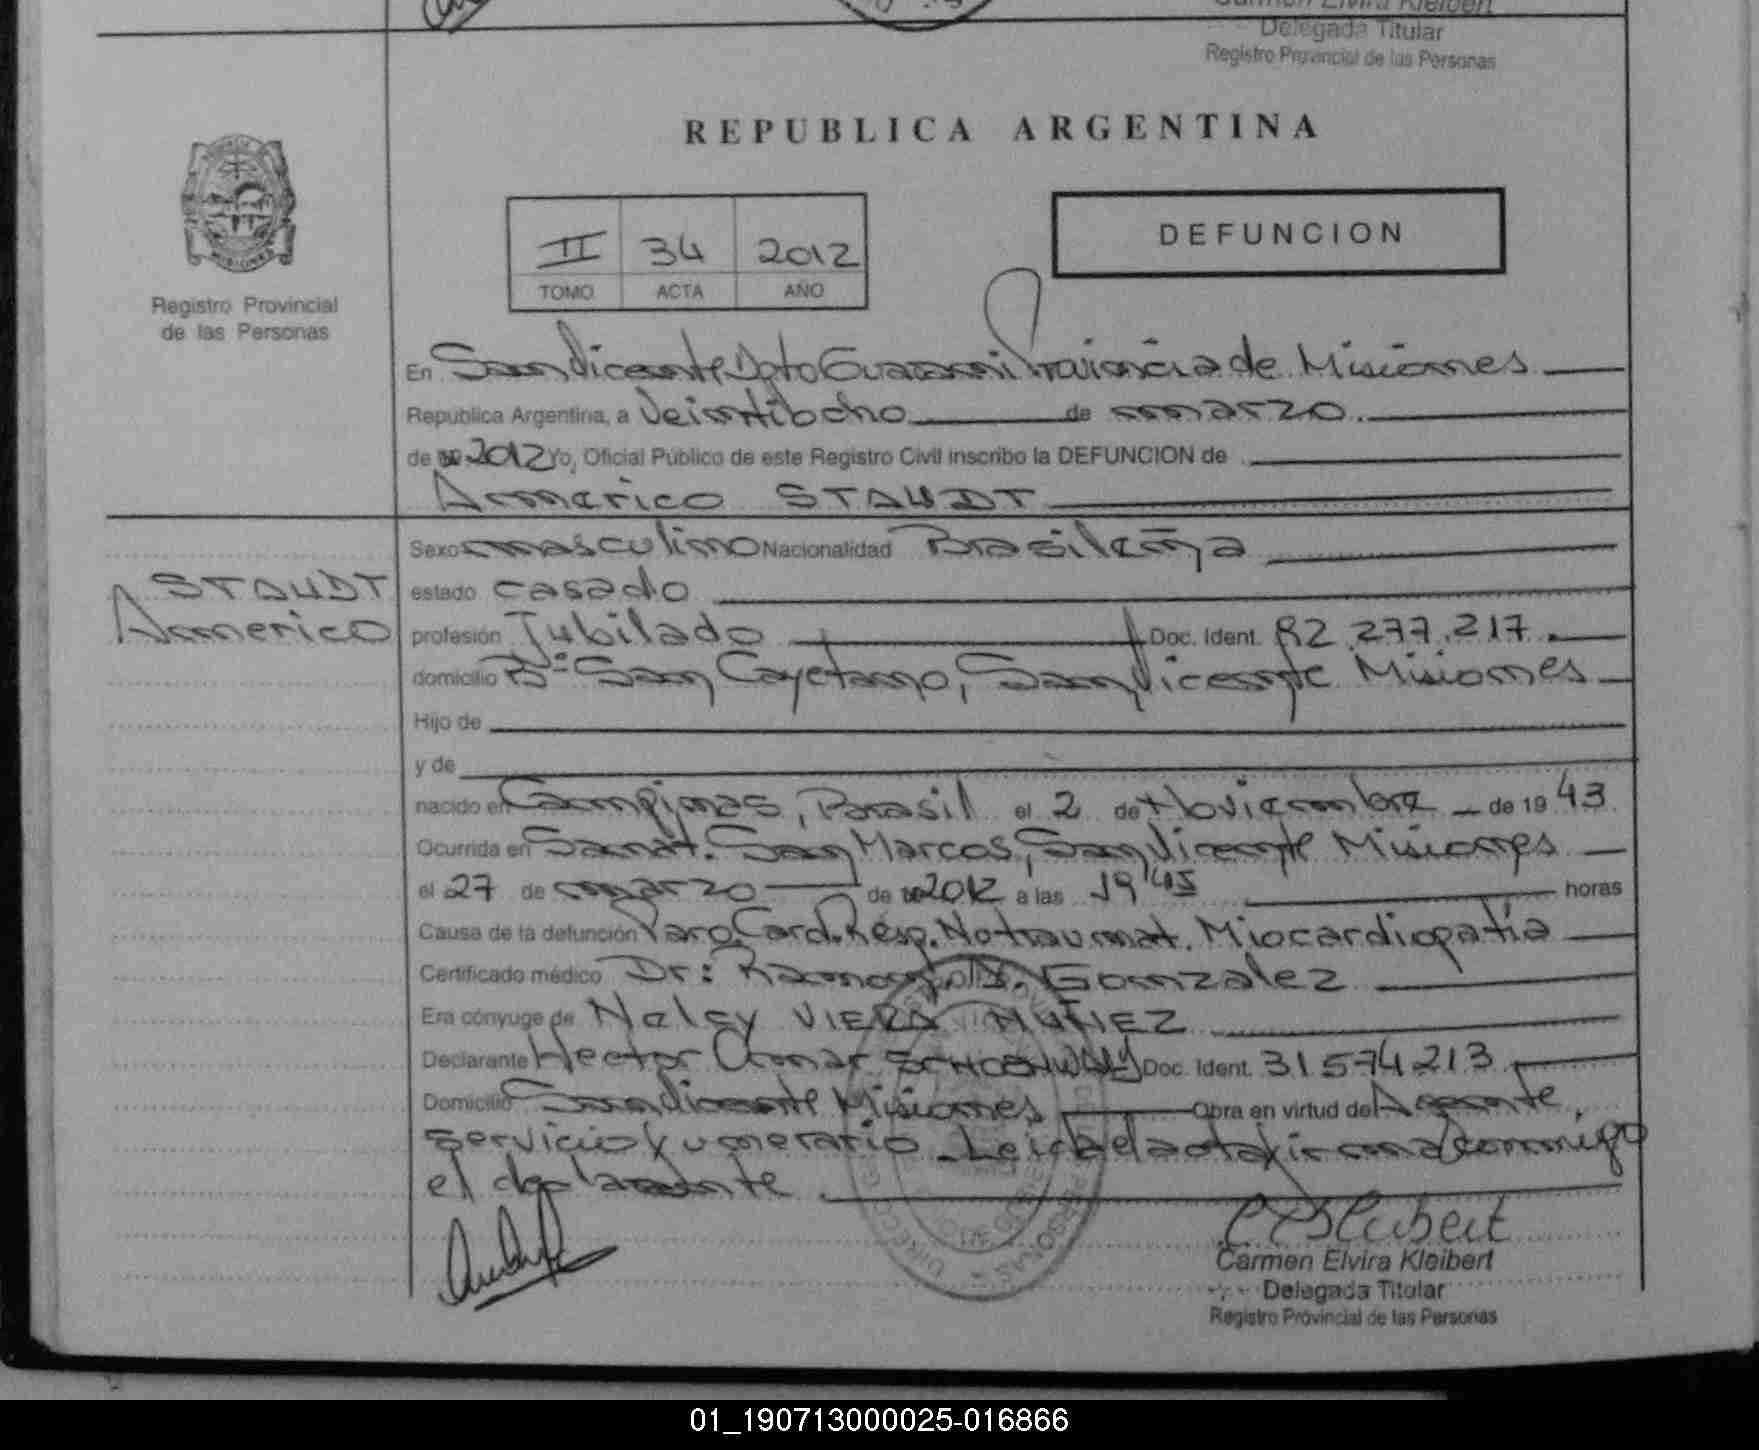 Carmen Elvira Kleibert
Delegada Titular
Registro Provincial de las Personas
REPUBLICA ARGENTINA
II 34 2012
TOMO ACTA AÑO
DEFUNCION
MISIONES
Registro Provincial
de las Personas
En San Vicente Dpto Guarani Provincia de Misiones
Republica Argentina, a Veintiocho de marzo
de 2012 Yo, Oficial Público de este Registro Civil inscribo la DEFUNCION de
Americo STAUDT
Sexo masculino Nacionalidad Brasileña
STAUDT
Americo
estado casado
profesión Jubilado Doc. Ident. 92.277.217.
domicilio Bº San Cayetano, San Vicente Misiones
Hijo de
y de
nacido en Campinas, Brasil el 2 de Noviembre de 1943
Ocurrida en Sanat. San Marcos, San Vicente Misiones
el 27 de marzo de 2012 a las 19'45 horas
Causa de la defunción Paro Card. Resp. No traumat. Miocardiopatía
Certificado médico Dr: Ramon Gonzalez
Era cónyuge de Nelsy VIERA NUÑEZ
Declarante Hector Omar Doc. Ident. 31574213
Domicilio San Vicente Misiones Obra en virtud de Agente,
servicio fumerario. Leida el acta firma conmigo
el declarante
Carmen Elvira Kleibert
Delegada Titular
Registro Provincial de las Personas
01_190713000025-016866